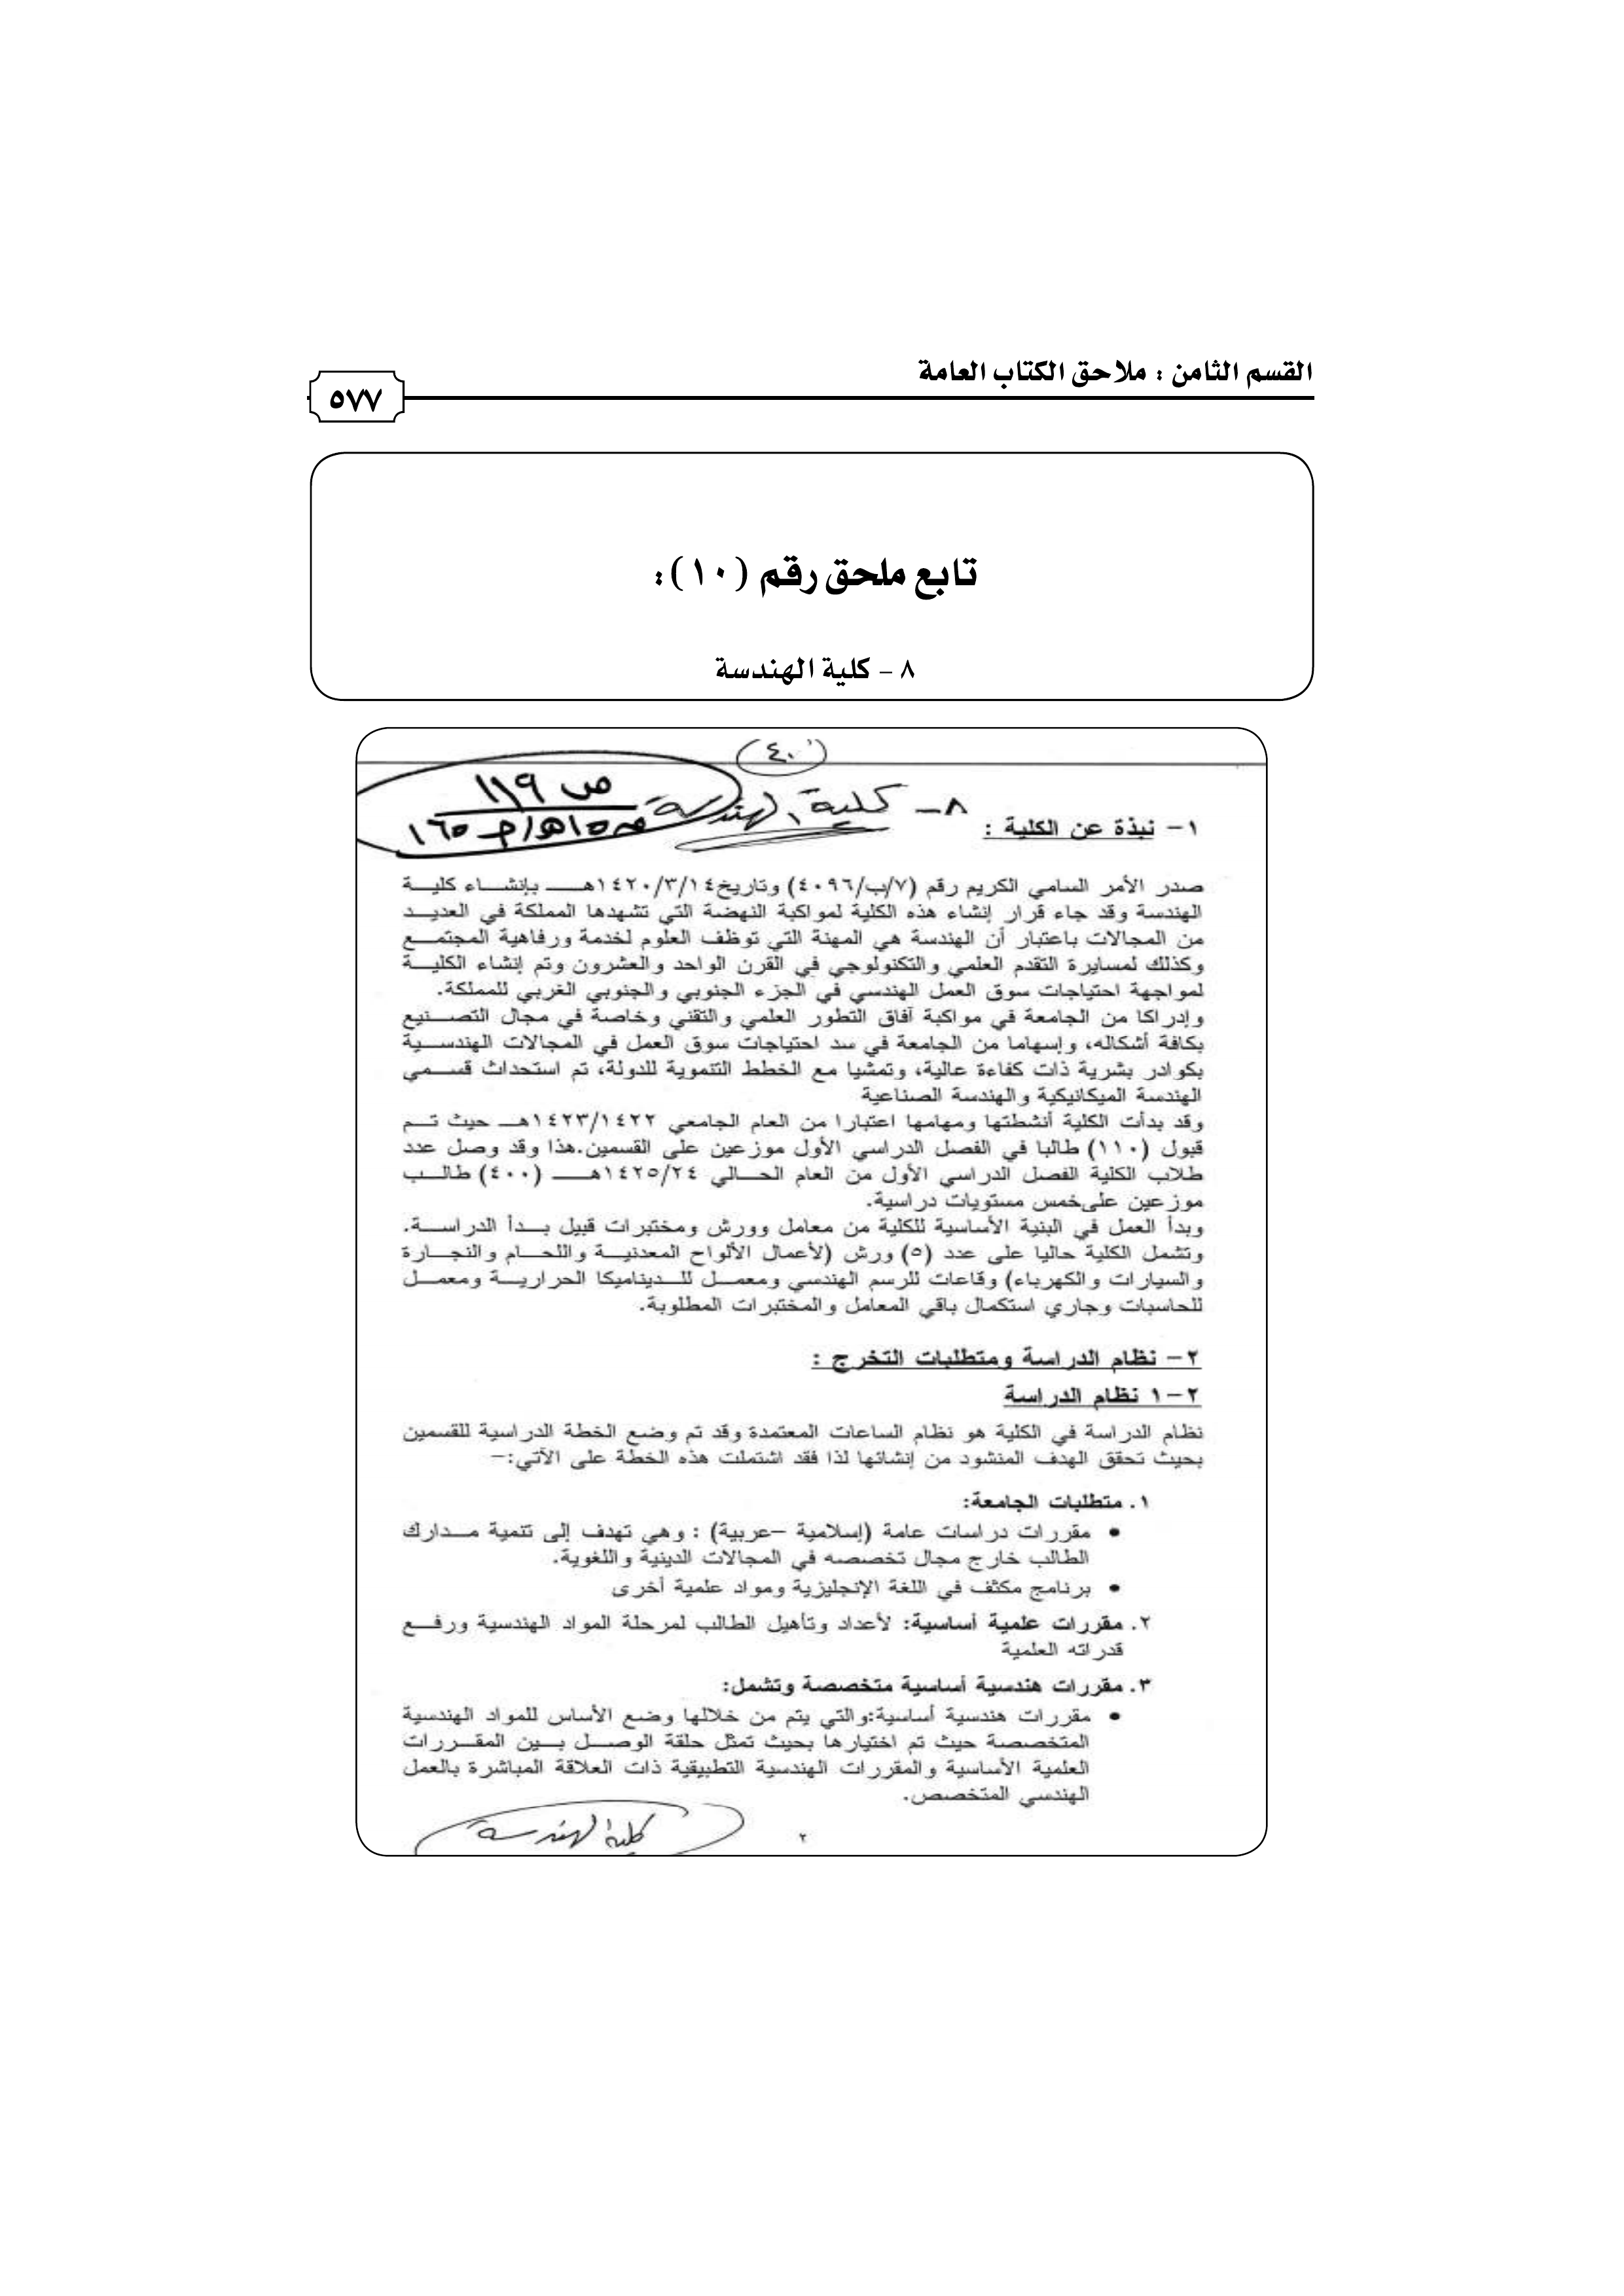 القسم الثامن : ملاحق الكتاب العامة
٥٧٧
تابع ملحق رقم (١٠):
٨ – كلية الهندسة
٤٠
ص ١١٩
٨ – كلية الهندسة
١- نبذة عن الكلية :
صدر الأمر السامي الكريم رقم (٧/ب/٤٠٩٦) وتاريخ١٤٢٠/٣/١٤هـــ بإنشـــاء كليـــة
الهندسة وقد جاء قرار إنشاء هذه الكلية لمواكبة النهضة التي تشهدها المملكة في العديــد
من المجالات باعتبار أن الهندسة هي المهنة التي توظف العلوم لخدمة ورفاهية المجتمــع
وكذلك لمسايرة التقدم العلمي والتكنولوجي في القرن الواحد والعشرون وتم إنشاء الكليــة
لمواجهة احتياجات سوق العمل الهندسي في الجزء الجنوبي والجنوبي الغربي للمملكة.
وإدراكا من الجامعة في مواكبة آفاق التطور العلمي والتقني وخاصة في مجال التصــنيع
بكافة أشكاله، وإسهاما من الجامعة في سد احتياجات سوق العمل في المجالات الهندســية
بكوادر بشرية ذات كفاءة عالية، وتمشيا مع الخطط التنموية للدولة، تم استحداث قســمي
الهندسة الميكانيكية والهندسة الصناعية
وقد بدأت الكلية أنشطتها ومهامها اعتبارا من العام الجامعي ١٤٢٣/١٤٢٢هـ حيث تــم
قبول (١١٠) طالبا في الفصل الدراسي الأول موزعين على القسمين.هذا وقد وصل عدد
طلاب الكلية الفصل الدراسي الأول من العام الحــالي ١٤٢٥/٢٤هـــ (٤٠٠) طالــب
موزعين على خمس مستويات دراسية.
وبدأ العمل في البنية الأساسية للكلية من معامل وورش ومختبرات قبيل بــدأ الدراســة.
وتشمل الكلية حاليا على عدد (٥) ورش (لأعمال الألواح المعدنيــة واللحــام والنجــارة
والسيارات والكهرباء) وقاعات للرسم الهندسي ومعمــل للــديناميكا الحراريــة ومعمــل
للحاسبات وجاري استكمال باقي المعامل والمختبرات المطلوبة.
٢- نظام الدراسة ومتطلبات التخرج :
٢-١ نظام الدراسة
نظام الدراسة في الكلية هو نظام الساعات المعتمدة وقد تم وضع الخطة الدراسية للقسمين
بحيث تحقق الهدف المنشود من إنشائها لذا فقد اشتملت هذه الخطة على الآتي:-
١. متطلبات الجامعة:
• مقررات دراسات عامة (إسلامية –عربية) : وهي تهدف إلى تنمية مــدارك
الطالب خارج مجال تخصصه في المجالات الدينية واللغوية.
• برنامج مكثف في اللغة الإنجليزية ومواد علمية أخرى
٢. مقررات علمية أساسية: لأعداد وتأهيل الطالب لمرحلة المواد الهندسية ورفــع
قدراته العلمية
٣. مقررات هندسية أساسية متخصصة وتشمل:
• مقررات هندسية أساسية:والتي يتم من خلالها وضع الأساس للمواد الهندسية
المتخصصة حيث تم اختيارها بحيث تمثل حلقة الوصــل بــين المقــررات
العلمية الأساسية والمقررات الهندسية التطبيقية ذات العلاقة المباشرة بالعمل
الهندسي المتخصص.
٢
كلية الهندسة